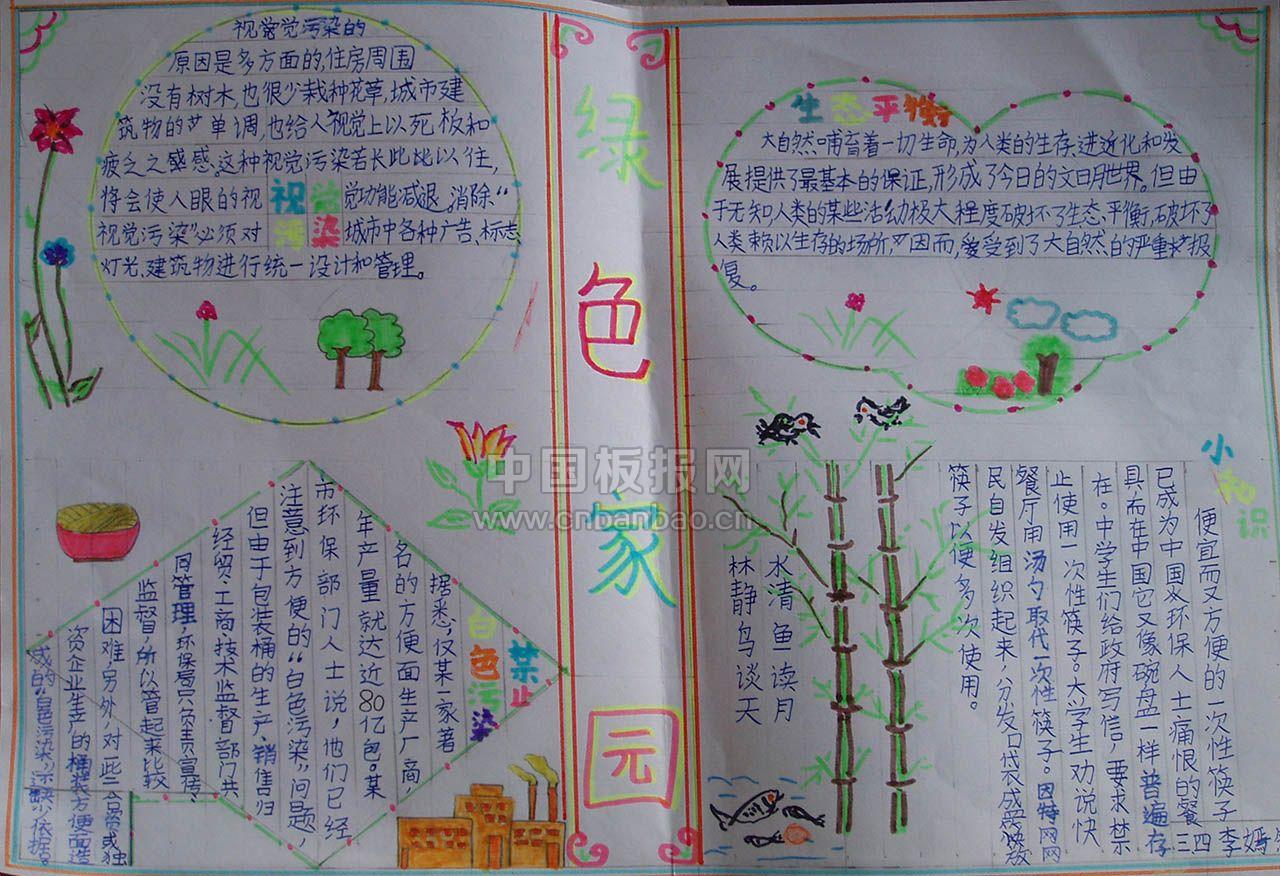 绿色家园
视觉觉污染的
原因是多方面的,住房周围
没有树木,也很少栽种花草,城市建
筑物的单调,也给人视觉上以死板和
疲乏之感感。这种视觉污染若长此比以往,
将会使人眼的视觉功能减退。消除“
视觉污染”必须对城市中各种广告、标志、
灯光、建筑物进行统一设计和管理。
视觉
污染
生态平衡
大自然哺育着一切生命,为人类的生存、进近化和发
展提供了最基本的保证,形成了今日的文明世界。但由
于无知人类的某些活动极大程度破坏了生态、平衡,破坏了
人类赖以生存的场所,因而,受到了大自然的严重报
复。
小知识
便宜而又方便的一次性筷子
已成为中国环保人士痛恨的餐
具而在中国它又像碗盘一样普遍存
在。中学生们给政府写信,要求禁
止使用一次性筷子。大学生劝说快
餐厅用汤勺取代一次性筷子。因特网网
民自发组织起来,分发口袋
筷子以便多次使用。
三四李嫣
水清鱼读月
林静鸟谈天
禁止
白色污染
据悉,仅某一家著
名的方便面生产厂商,
年产量就达近80亿包。某
市环保部门人士说,他们已经
注意到方便的“白色污染”问题,
但由于包装桶的生产、销售归
经贸、工商、技术监督部门共
同管理,环保局只负责宣传、
监督,所以管起来比较
困难,另外,对一些合资或独
资企业生产的桶装方便面造
成的“白色污染”深缺少依据。
中国板报网
www.cnbanbao.cn